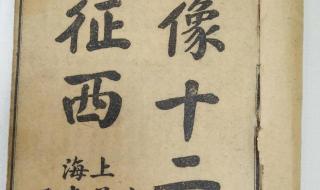 像十二
征西
上海